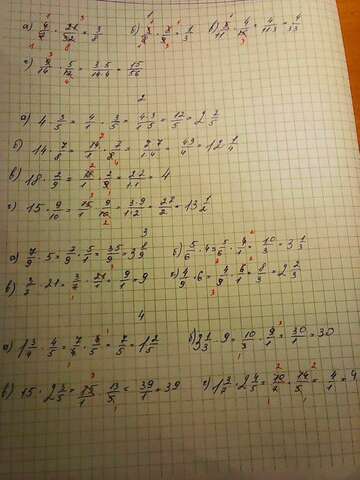 1
а) 4/7 · 21/32 = 3/8 б) · = 1/3 в) 5/11 · 4/15 = 4/11·3 = 4/33
г) 9/14 · 5/12 = 3·5/14·4 = 15/56
2
а) 4 · 3/5 = 4/1 · 3/5 = 4·3/1·5 = 12/5 = 2 2/5
б) 14 · 7/8 = 14/1 · 7/8 = 7·7/1·4 = 49/4 = 12 1/4
в) 18 · 2/9 = 18/1 · 2/9 = 2·2/1·1 = 4
г) 15 · 9/10 = 15/1 · 9/10 = 3·9/1·2 = 27/2 = 13 1/2
3
а) 7/9 · 5 = 7/9 · 5/1 = 35/9 = 3 8/9 б) 5/6 · 4 = 5/6 · 4/1 = 10/3 = 3 1/3
в) 3/7 · 21 = 3/7 · 21/1 = 9/1 = 9 г) 4/9 · 6 = 4/9 · 6/1 = 8/3 = 2 2/3
4
а) 1 3/4 · 4/5 = 7/4 · 4/5 = 7/5 = 1 2/5 б) 3 1/3 · 9 = 10/3 · 9/1 = 30/1 = 30
в) 15 · 2 3/5 = 15/1 · 13/5 = 39/1 = 39 г) 1 3/7 · 2 4/5 = 10/7 · 14/5 = 4/1 = 4